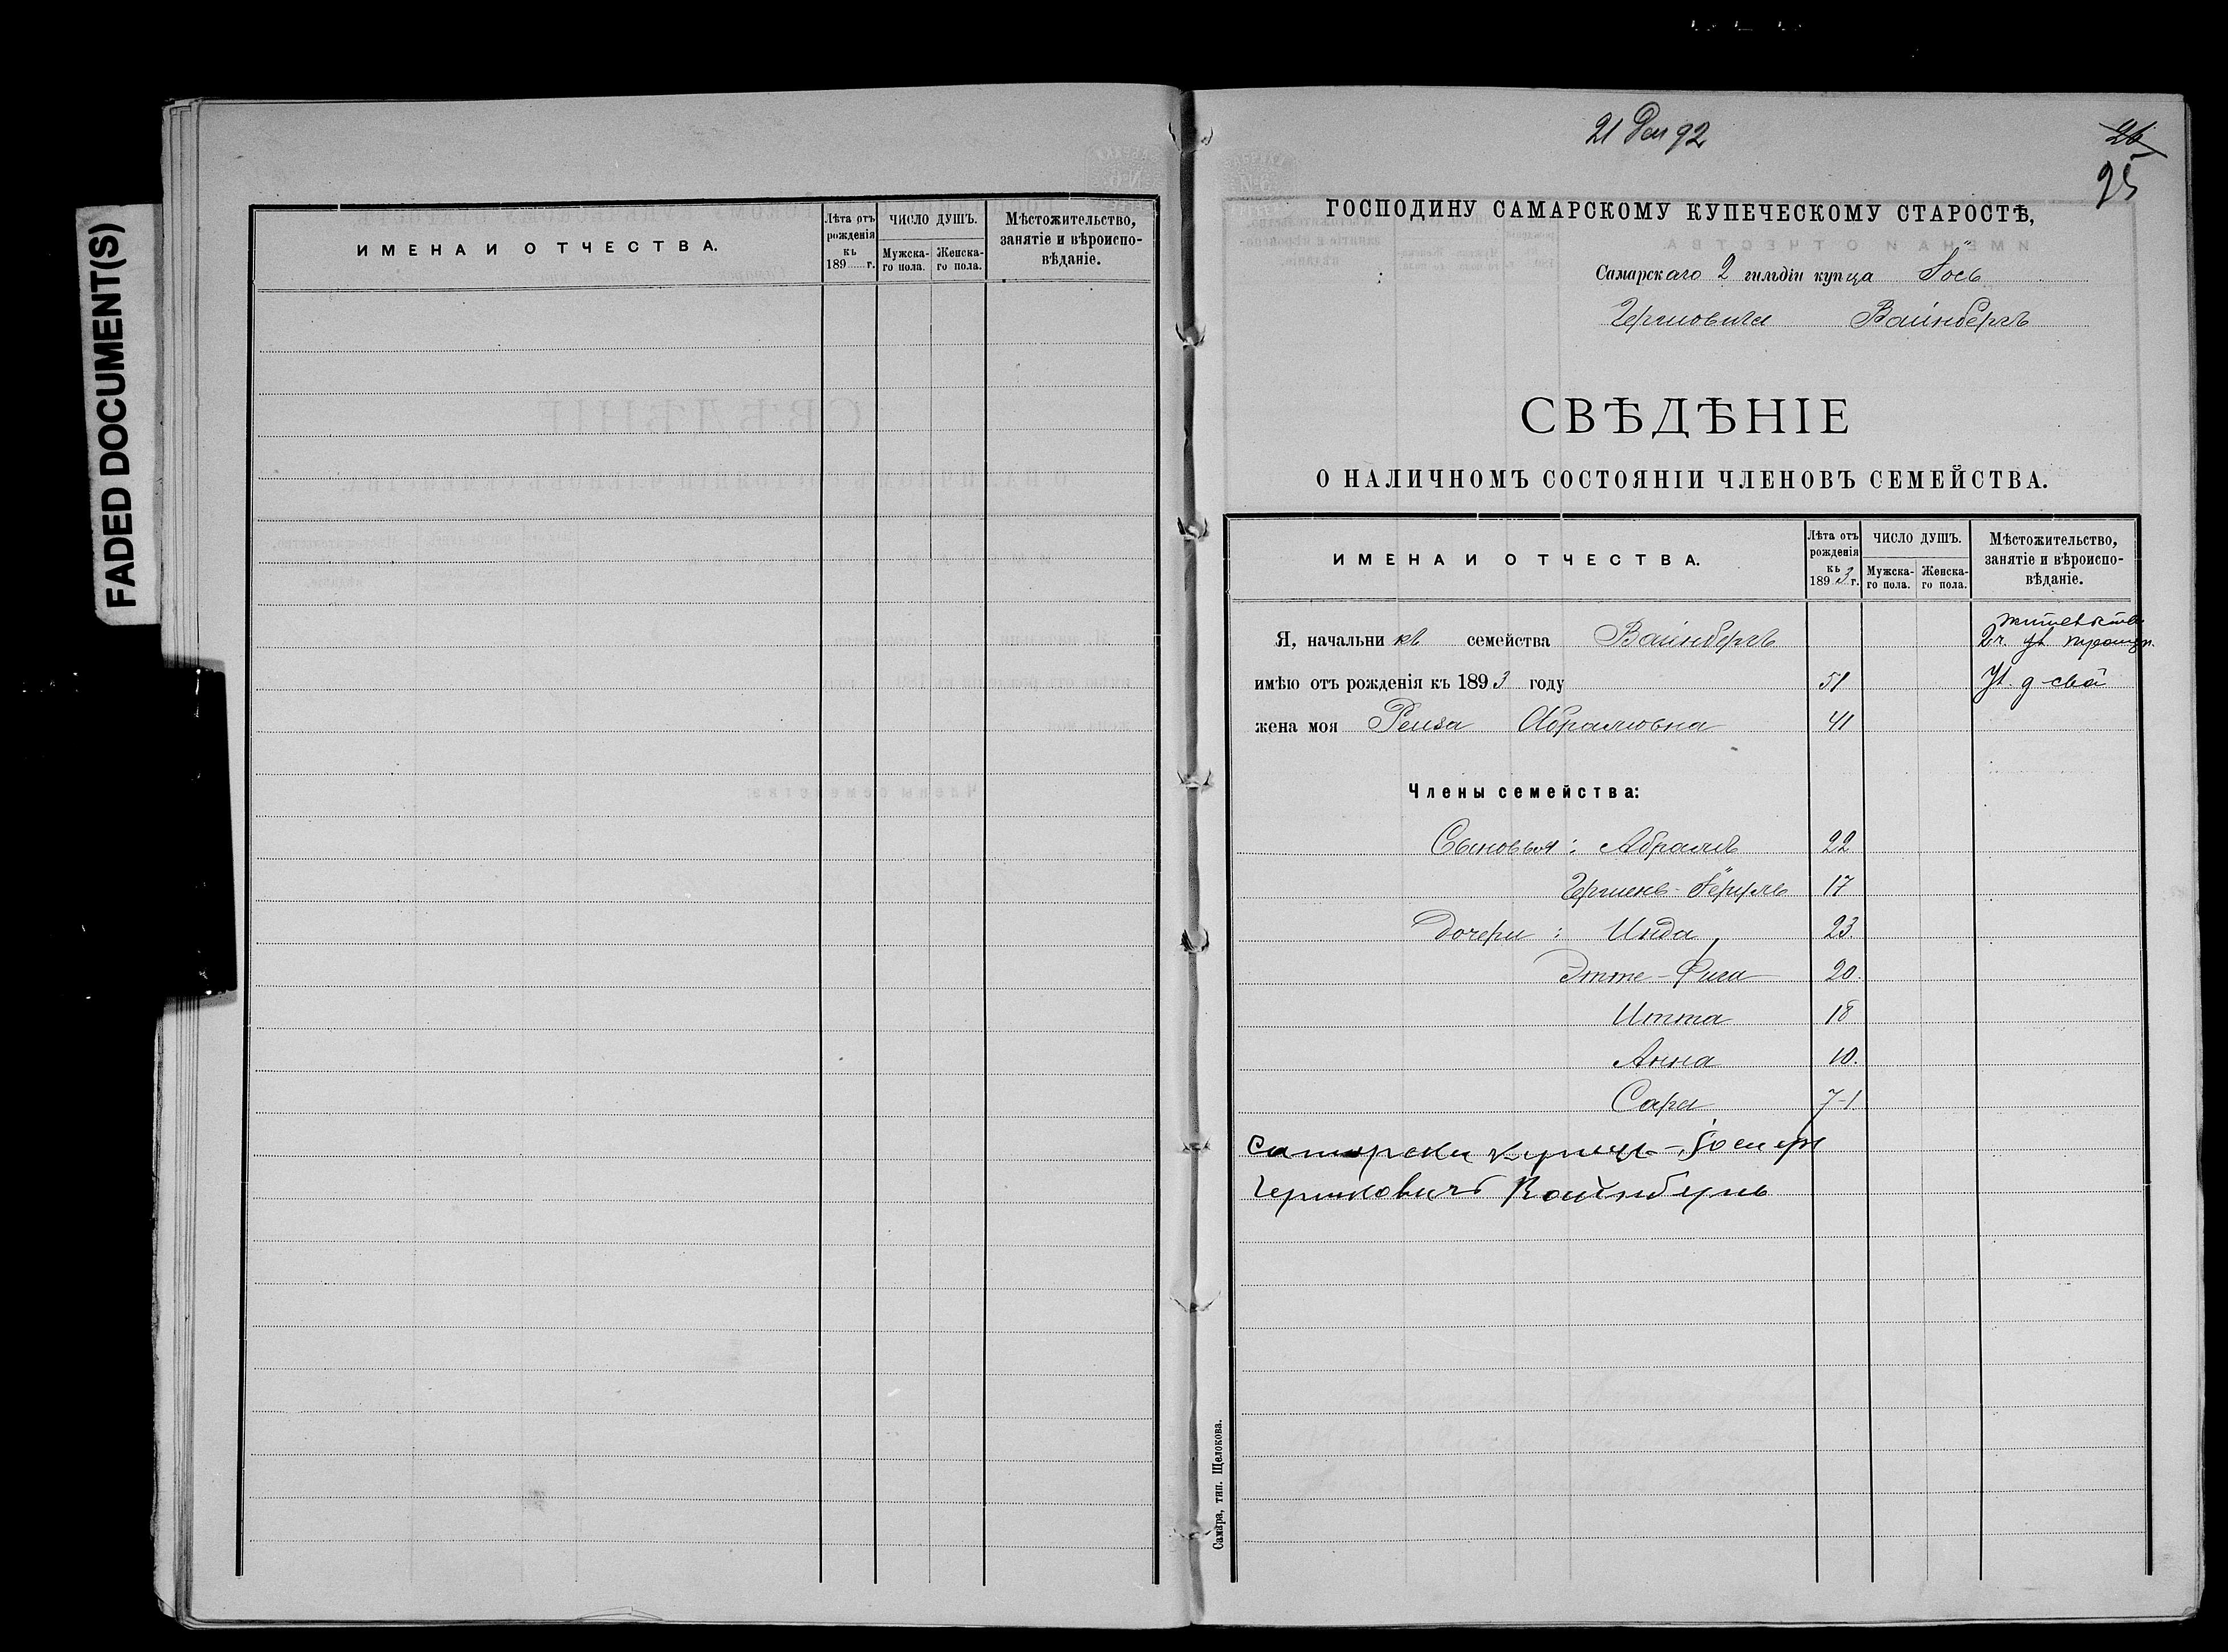 FADED DOCUMENT(S)
ИМЕНА И ОТЧЕСТВА.
Лѣта отъ рожденія къ 189 г.
ЧИСЛО ДУШЪ.
Мужска-го пола.
Женска-го пола.
Мѣстожительство, занятіе и вѣроиспо-вѣданіе.
21 Дек 92
26
25
ГОСПОДИНУ САМАРСКОМУ КУПЕЧЕСКОМУ СТАРОСТѢ,
Самарскаго 2 гильдіи купца Іось
Гершовича Вайнбергъ
СВѢДѢНІЕ
О НАЛИЧНОМЪ СОСТОЯНІИ ЧЛЕНОВЪ СЕМЕЙСТВА.
ИМЕНА И ОТЧЕСТВА.
Лѣта отъ рожденія къ 1893 г.
ЧИСЛО ДУШЪ.
Мужска-го пола.
Женска-го пола.
Мѣстожительство, занятіе и вѣроиспо-вѣданіе.
Я, начальникъ семейства Вайнбергъ
имѣю отъ рожденія къ 1893 году 51
жена моя Рейза Абрамовна 41
Члены семейства:
Сыновья: Абрамъ 22
17
Дочери: Инда 23.
Этте-Фига 20.
Итта 18
Анна 10.
Сара 7-1
Самарски купецъ
Гершковичъ
Самара, тип. Щелокова.